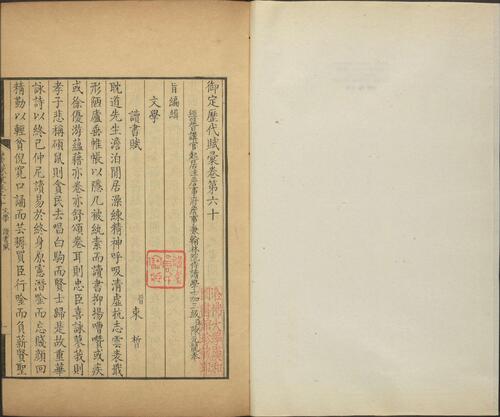 御定歷代賦彙卷第六十
經筵日講官起居注詹事府詹事兼翰林院侍讀學士加三級臣陳元龍奉
旨編緝
文學
讀書賦
晉 束晳
耽道先生澹泊閒居藻練精神呼吸清虛抗志雲表戢
形陋廬垂帷帳以隱几被紈素而讀書抑揚嘈囋或疾
或徐優游蘊藉亦卷亦舒頌卷耳則忠臣喜詠蓼莪則
孝子悲稱碩鼠則貪民去唱白駒而賢士歸是故重華
詠詩以終己仲尼讀易於終身原憲潛吟而忘賤顏回
精勤以輕貧倪寬口誦而芸耨買臣行吟而負薪賢聖
文學 讀書賦